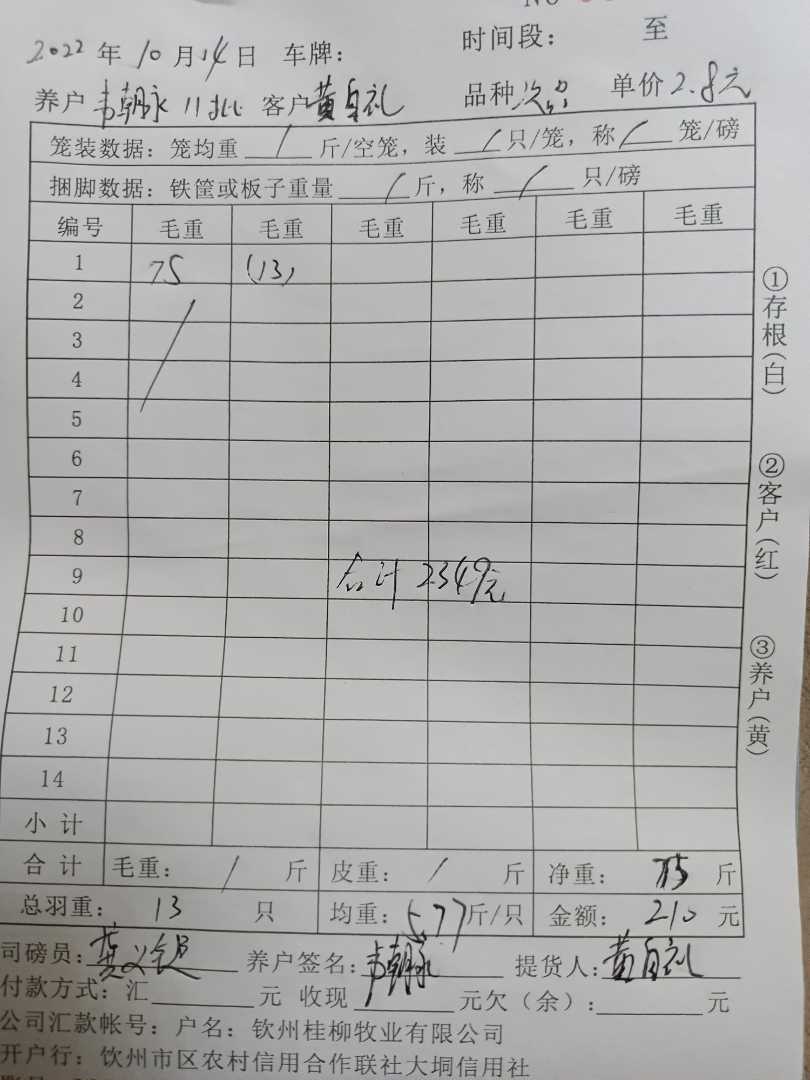 NO
2022 年 10 月 14 日 车牌： 时间段： 至
养户 韦朝永 11批 客户 黄自礼 品种 次品 单价 2.8元
笼装数据：笼均重 / 斤/空笼，装 / 只/笼，称 / 笼/磅
捆脚数据：铁筐或板子重量 / 斤，称 / 只/磅
编号 毛重 毛重 毛重 毛重 毛重 毛重
1 75 (13)
2
3
4
5
6
7
8
9 合计 2349元
10
11
12
13
14
小 计
合 计 毛重： / 斤 皮重： / 斤 净重： 75 斤
总羽重： 13 只 均重： 5.77 斤/只 金额： 210 元
司磅员： 养户签名： 韦朝永 提货人： 黄自礼
付款方式：汇 元 收现 元欠（余）： 元
公司汇款帐号：户名：钦州桂柳牧业有限公司
开户行：饮州市区农村信用合作联社大垌信用社
①存根（白）
②客户（红）
③养户（黄）